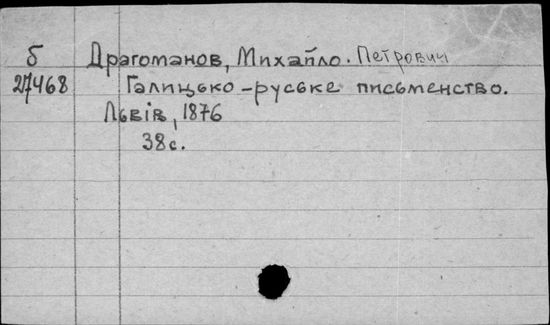 б Драгоманов, Михайло. Петрович
27468 Галицько-руське письменство.
Львів, 1876
38 с.